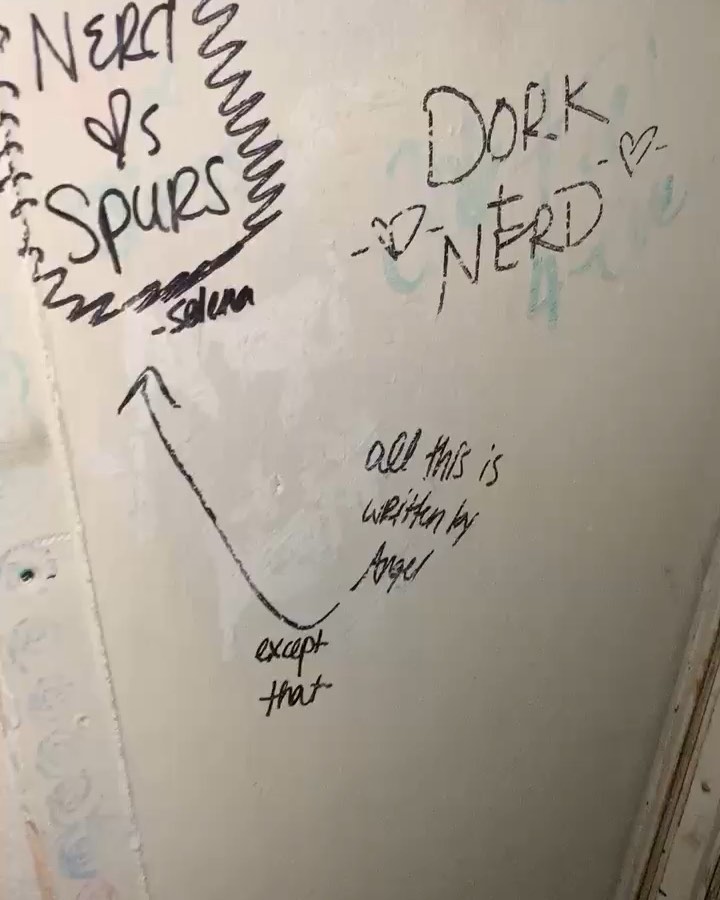 NERD
♡s
SPURS
-selena
DORK
+
NERD
all this is
written by
Angel
except
that